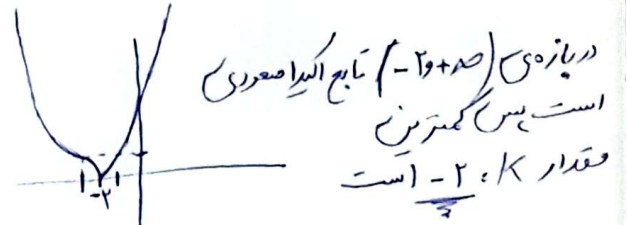 در بازه‌ی (-2, +∞) تابع اکیدا صعودی
است پس کمترین
مقدار K، -2 است
-2